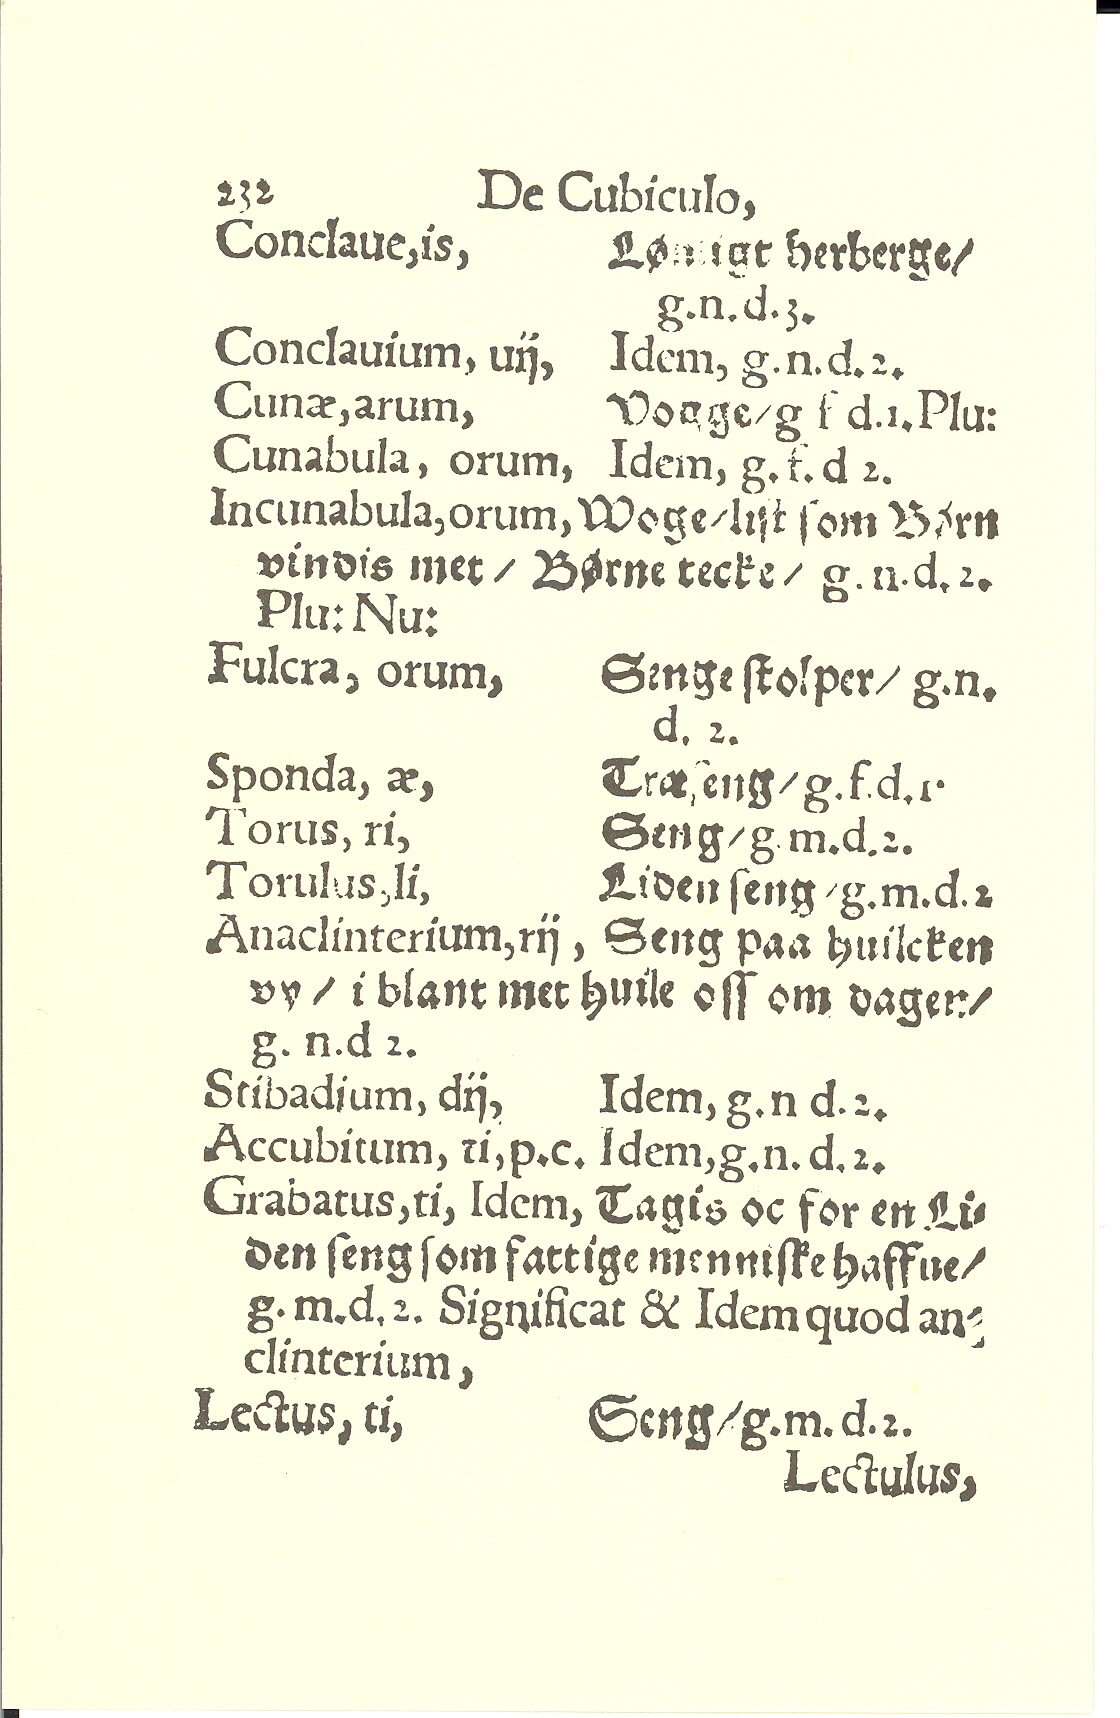 232 De Cubiculo,
Conclaue,is, Lønligt herberge/
g.n.d.3.
Conclauium, uij, Idem, g.n.d.2.
Cunæ,arum, Vogge/g f d.1.Plu:
Cunabula, orum, Idem, g.f.d 2.
Incunabula,orum, Woge/list som Børn
vindis met / Børne tecke / g.n.d.2.
Plu: Nu:
Fulcra, orum, Senge stolper/ g.n.
d. 2.
Sponda, æ, Træseng/g.f.d.1.
Torus, ri, Seng/g.m.d.2.
Torulus,li, Liden seng/g.m.d.2
Anaclinterium,rij, Seng paa huilcken
vy / i blant met huile oss om dagen/
g. n.d 2.
Stibadium, dij, Idem, g.n d.2.
Accubitum, ti,p.c. Idem,g.n.d.2.
Grabatus,ti, Idem, Tagis oc for en Li-
den seng som fattige menniske haffue/
g.m.d.2. Significat & Idem quod an-
clinterium,
Lectus, ti, Seng/g.m.d.2.
Lectulus,